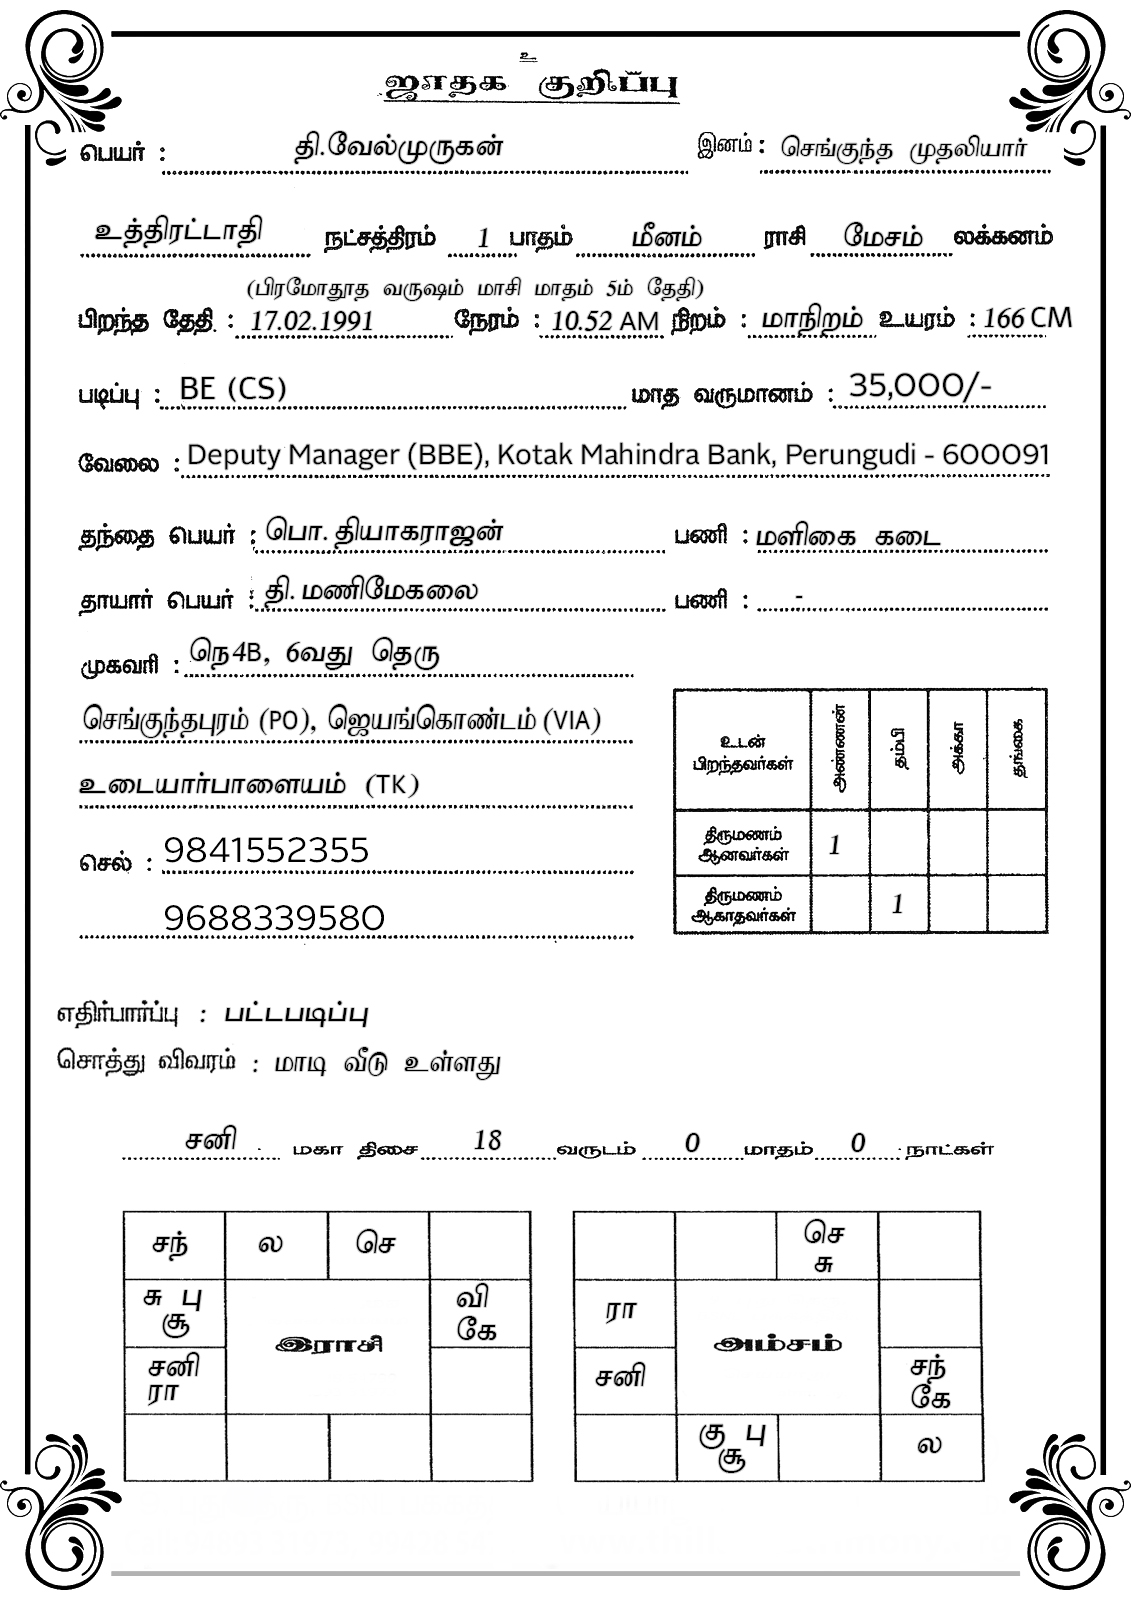 உ
ஜாதக குறிப்பு
பெயர் : தி.வேல்முருகன் இனம் : செங்குந்த முதலியார்
உத்திரட்டாதி நட்சத்திரம் 1 பாதம் மீனம் ராசி மேசம் லக்கனம்
(பிரமோதூத வருஷம் மாசி மாதம் 5ம் தேதி)
பிறந்த தேதி : 17.02.1991 நேரம் : 10.52 AM நிறம் : மாநிறம் உயரம் : 166 CM
படிப்பு : BE (CS) மாத வருமானம் : 35,000/-
வேலை : Deputy Manager (BBE), Kotak Mahindra Bank, Perungudi - 600091
தந்தை பெயர் : பொ. தியாகராஜன் பணி : மளிகை கடை
தாயார் பெயர் : தி. மணிமேகலை பணி : -
முகவரி : நெ4B, 6வது தெரு
செங்குந்தபுரம் (PO), ஜெயங்கொண்டம் (VIA)
உடையார்பாளையம் (TK)
செல் : 9841552355
9688339580
உடன் பிறந்தவர்கள் அண்ணன் தம்பி அக்கா தங்கை
திருமணம் ஆனவர்கள் 1
திருமணம் ஆகாதவர்கள் 1
எதிர்பார்ப்பு : பட்டபடிப்பு
சொத்து விவரம் : மாடி வீடு உள்ளது
சனி மகா திசை 18 வருடம் 0 மாதம் 0 நாட்கள்
சந் ல செ
சு பு சூ வி கே
இராசி
சனி ரா
செ சு
ரா
அம்சம்
சனி சந் கே
கு பு சூ ல